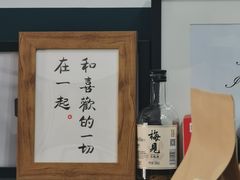 和喜歡的一切
在一起
梅見